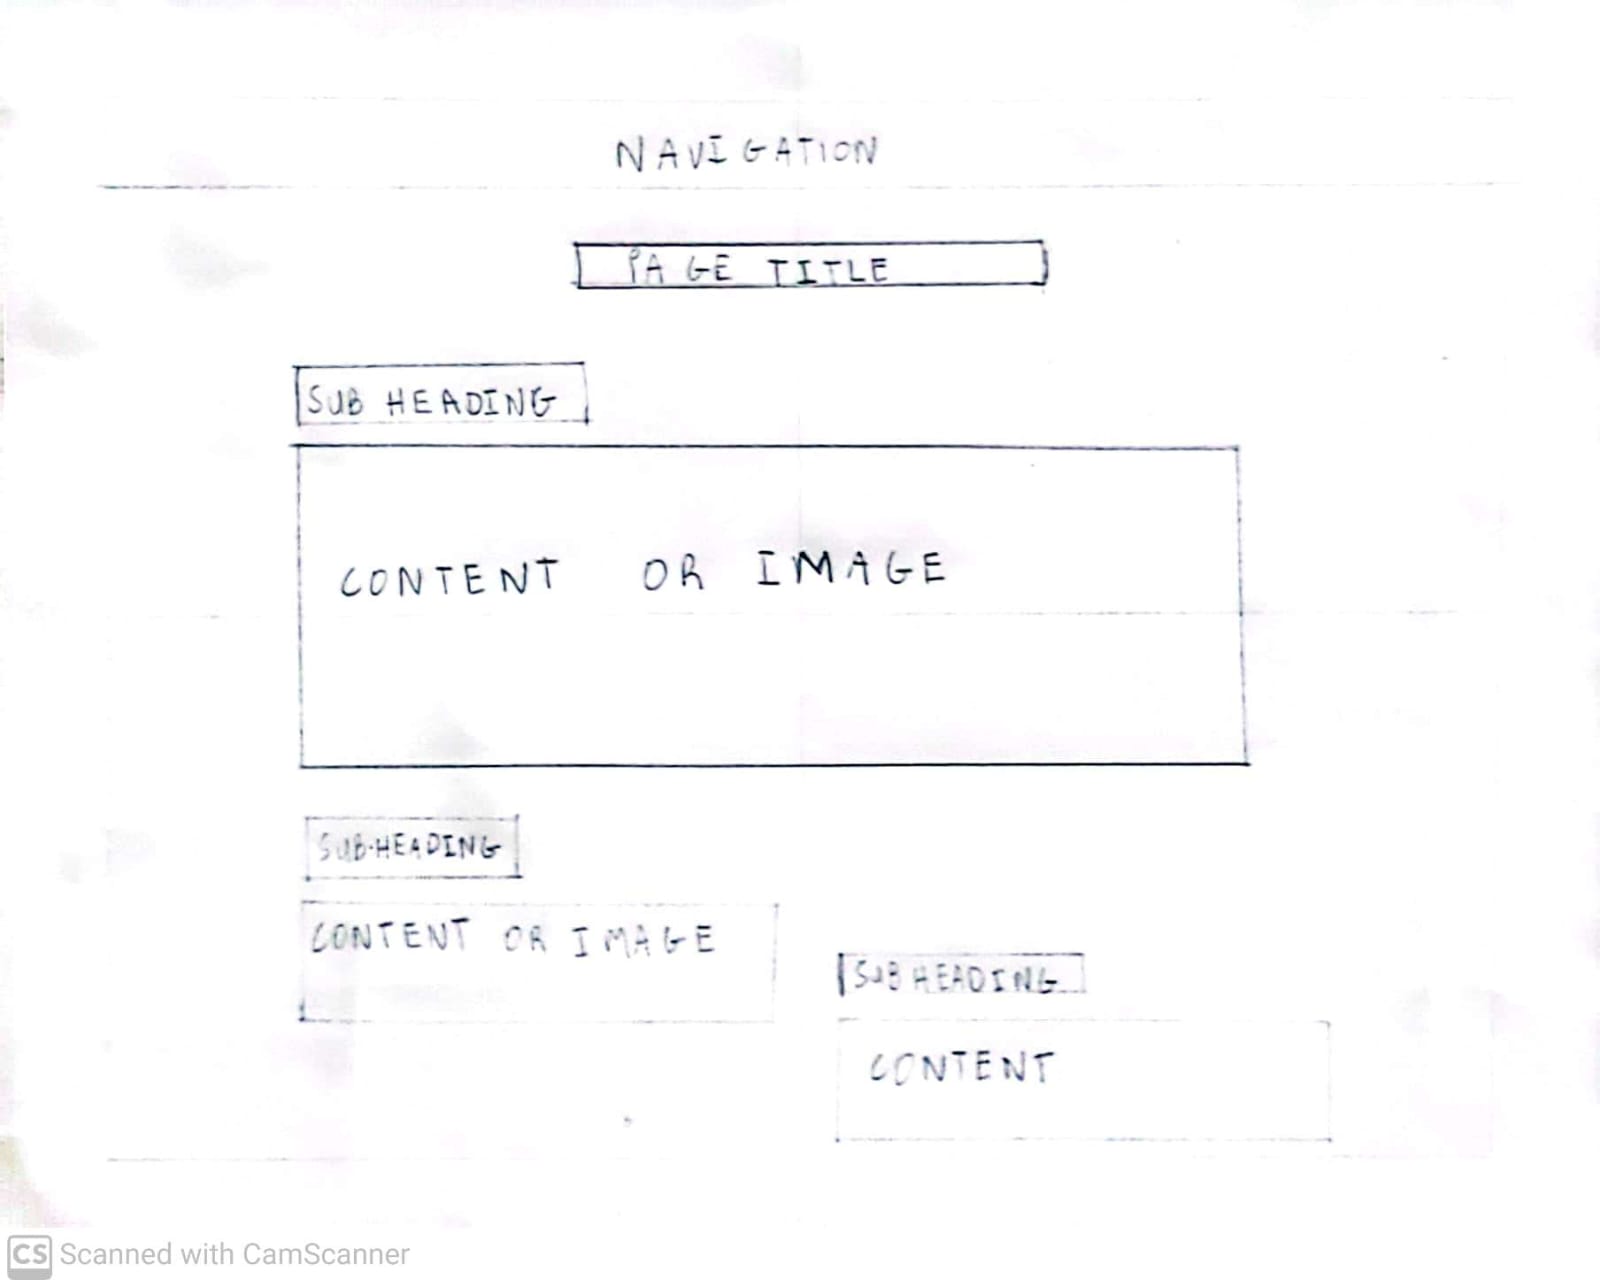 NAVIGATION
PAGE TITLE
SUB HEADING
CONTENT OR IMAGE
SUB-HEADING
CONTENT OR IMAGE
SUB HEADING
CONTENT
CS Scanned with CamScanner